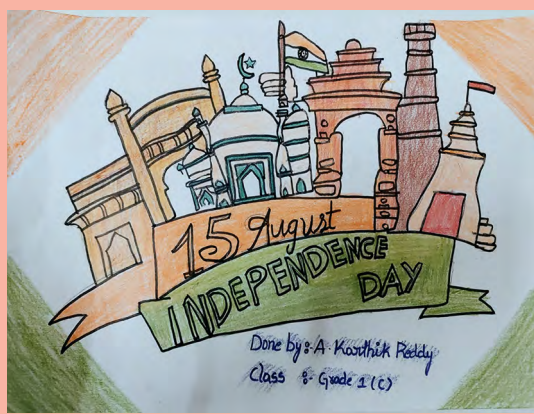 15 August
INDEPENDENCE
DAY
Done by:- A. Karthik Reddy
Class :- Grade 1 (C)